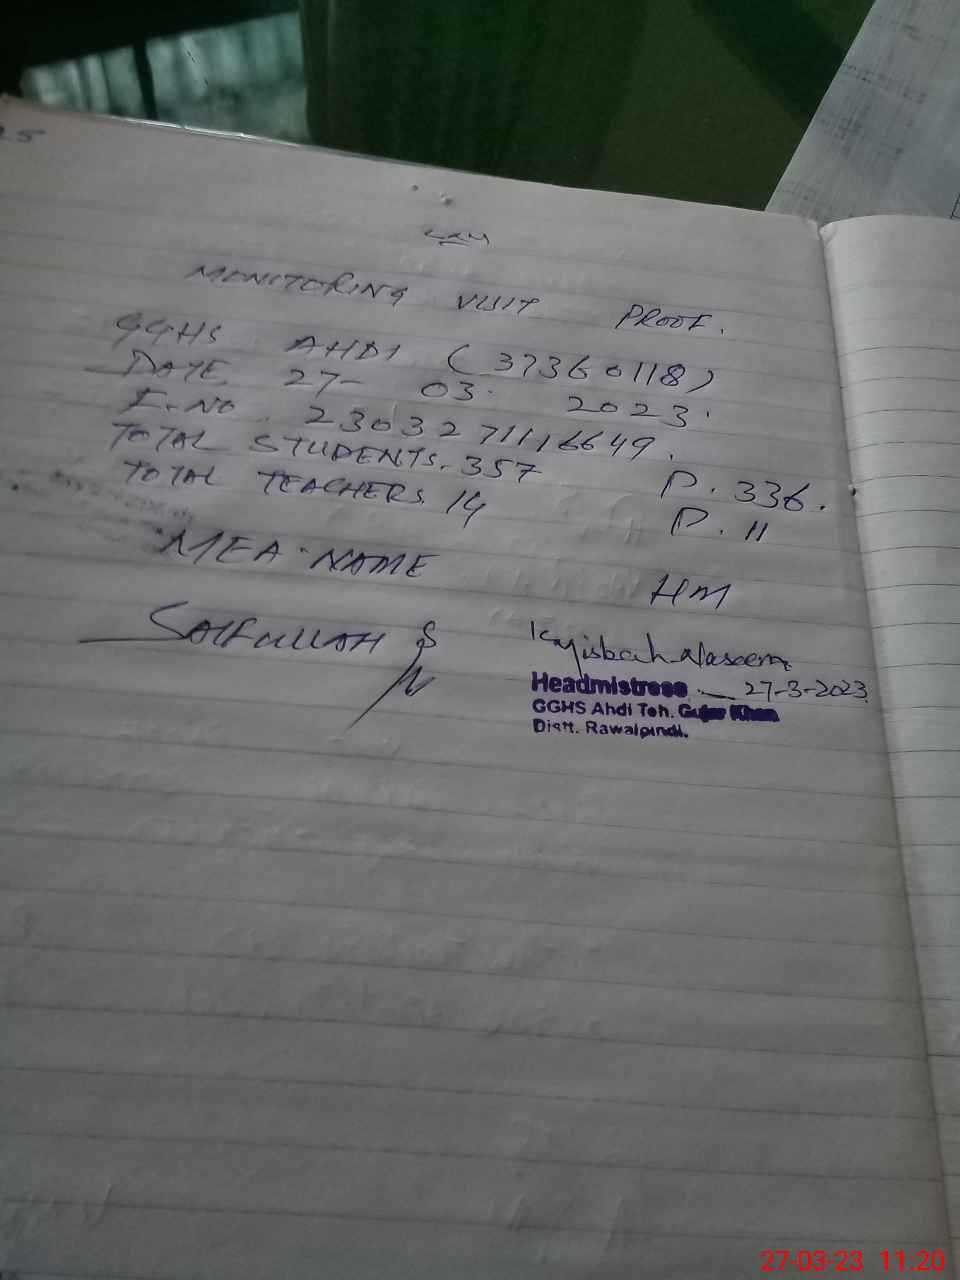 MONITORING VISIT PROOF.
GGHS AHDI (37360118)
DATE 27- 03- 2023.
E.NO. 2303271116649.
TOTAL STUDENTS. 357 P. 336.
TOTAL TEACHERS. 14 P. 11
MEA NAME HM
SAIFULLAH
Naseem
Headmistress 27-3-2023
GGHS Ahdi Teh. Gujar Khan
Distt. Rawalpindi.
27-03-23 11:20